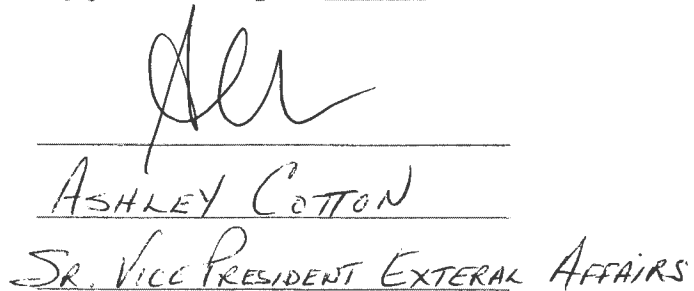 ASHLEY COTTON
SR. VICE PRESIDENT EXTERAL AFFAIRS